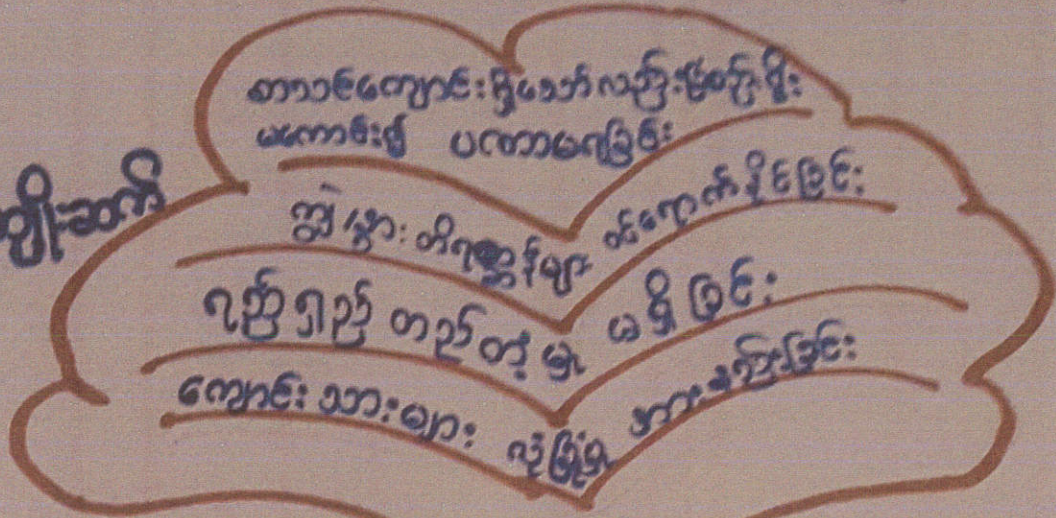 စာသင်ကျောင်းရှိသော်လည်းခြံစည်းရိုး
မကောင်း၍ ပဏာမရခြင်း
ကျိုးဆက်
ကျွဲ၊ နွား တိရစ္ဆာန်များ ဝင်ရောက်နိုင်ခြင်း
ရည်ရှည် တည်တံ့မှု မရှိခြင်း
ကျောင်းသားများ လုံခြုံမှု အားနည်းခြင်း